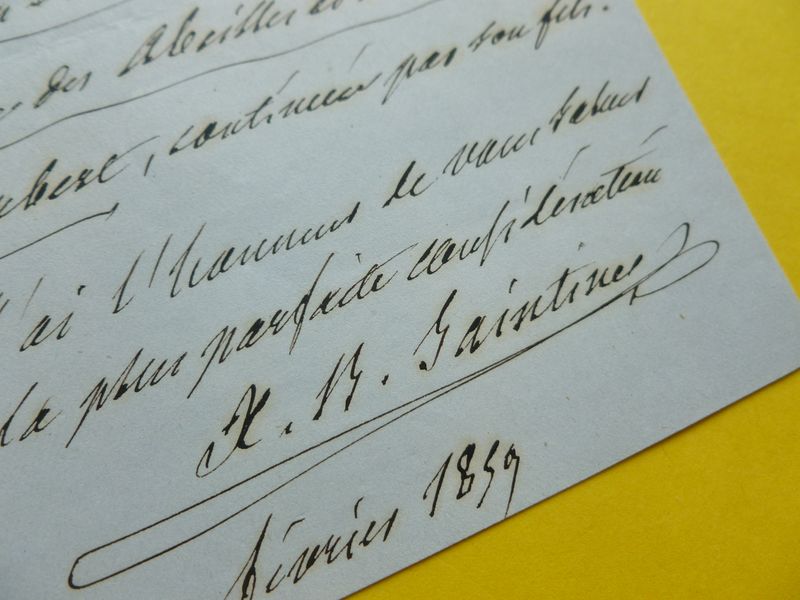 des Abeilles
, continuée par son fils.
J'ai l'honneur de vous saluer
la plus parfaite considération
X. B. Saintines
février 1859